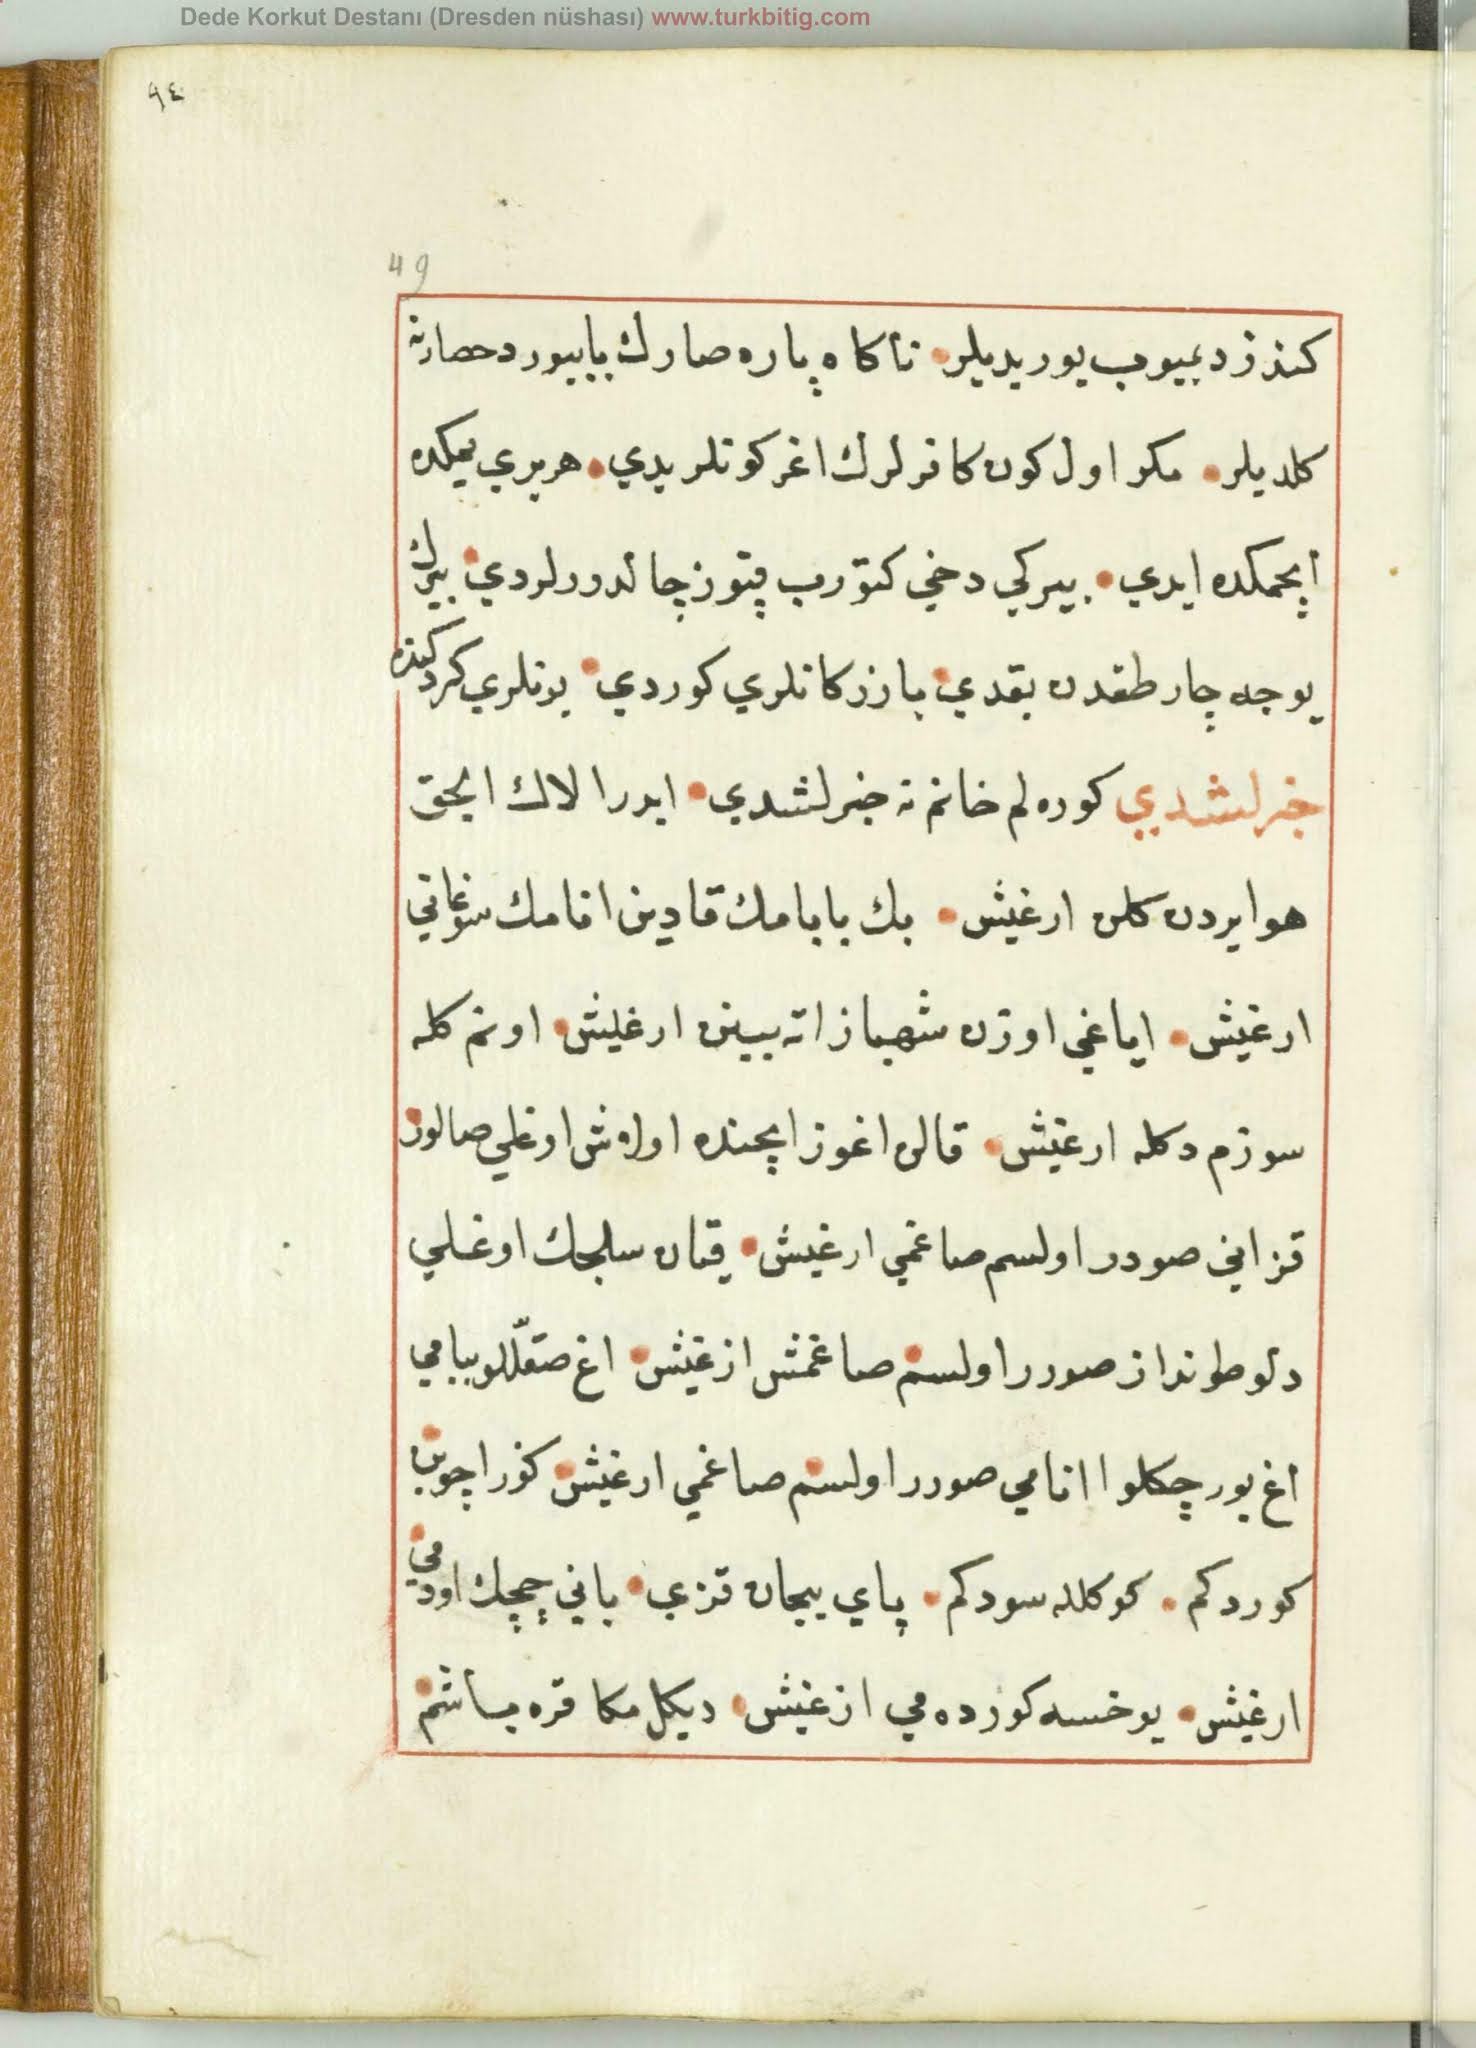 Dede Korkut Destanı (Dresden nüshası) www.turkbitig.com
٩٤
49
كندزد ديميوب يوريديلر نأكاه پاره صارك بايبورد حصارنه
كلديلر مكر اول كون كافرلرك اغر كونلريدي هر بري يمكده
اپچمكده ايدي بيركي دخي كتورب قپوز چالدورلردي بيرك
يوجه چارطقدن بقدي بازركانلري كوردي بونلري كردكنده
خبرلشدي كوره لم خانم نه خبرلشدي ايدر الاك الچق
هوا يردن كلن ارغيش بك بابامك قادين انامك سوغاتي
ارغيش اياغي اوزن شهباز اته بينن ارغيش اونم كله
سوزم دكله ارغيش قالن اغوز ايچنده اولاش اوغلي صالور
قزاني صودر اولسم صاغمي ارغيش قيان سلجك اوغلي
دلو طوندار صورر اولسم صاغمش ارغيش اغ صقللو ببامي
اغ بورچكلو انامي صورر اولسم صاغمي ارغيش كوز اچوبن
كوردكم كوكلله سودكم پاي بيجان قزي باني چچك اودمي
ارغيش يوخسه كورده مي ارغيش ديكل مكا قره باشم